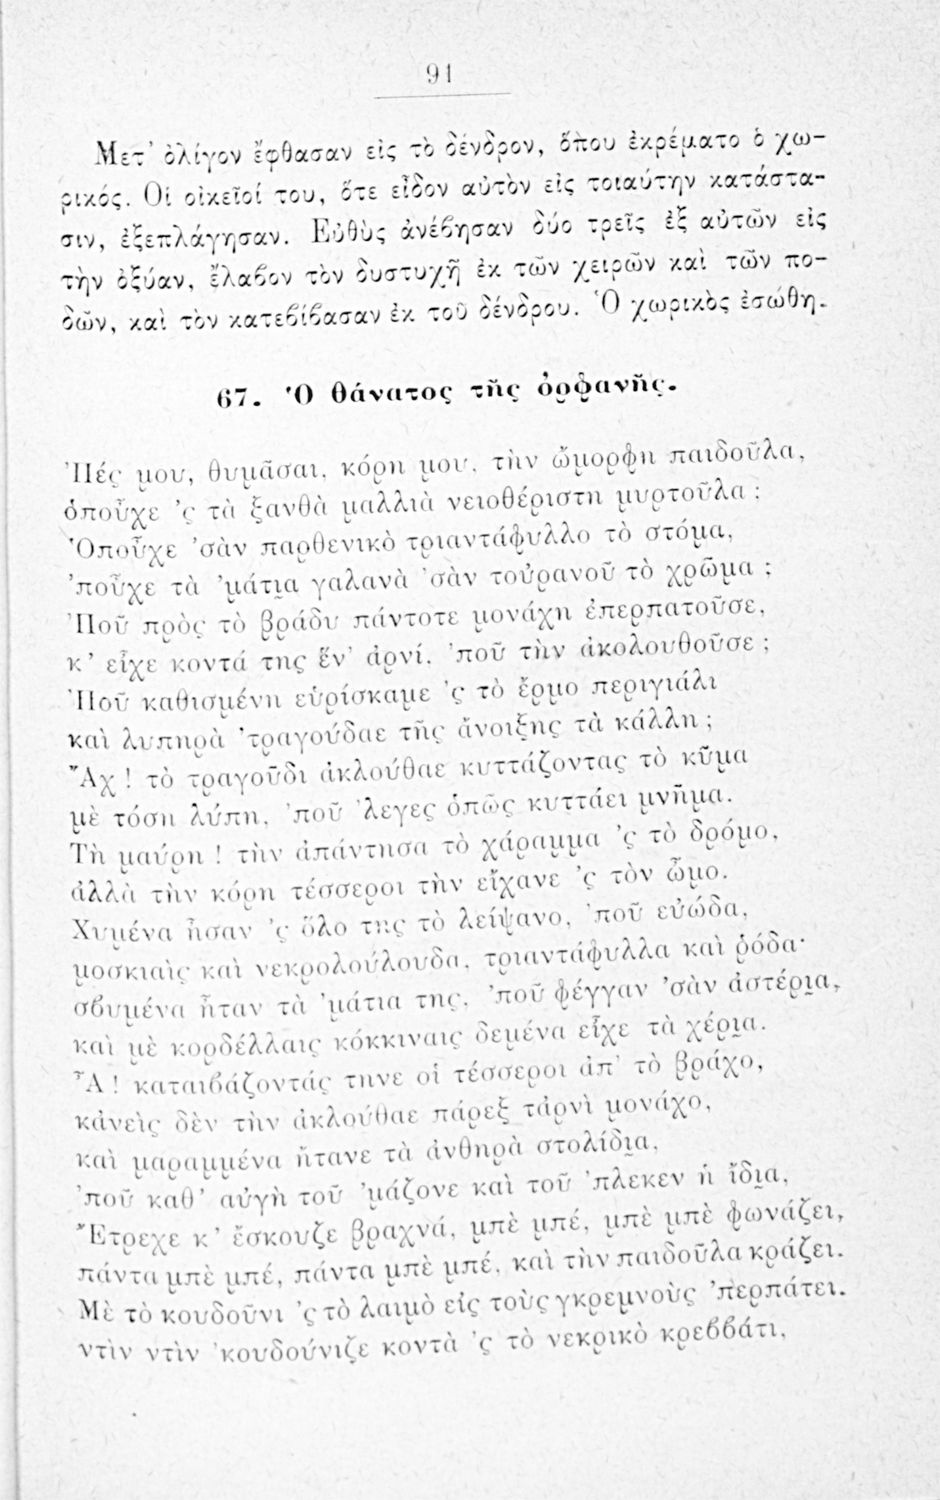 91
Μετ' ὀλίγον ἔφθασαν εἰς τὸ δένδρον, ὅπου ἐκρέματο ὁ χω-
ρικός. Οἱ οἰκεῖοί του, ὅτε εἶδον αὐτὸν εἰς τοιαύτην κατάστα-
σιν, ἐξεπλάγησαν. Εὐθὺς ἀνέβησαν δύο τρεῖς ἐξ αὐτῶν εἰς
τὴν ὀξύαν, ἔλαβον τὸν δυστυχῆ ἐκ τῶν χειρῶν καὶ τῶν πο-
δῶν, καὶ τὸν κατεβίβασαν ἐκ τοῦ δένδρου. Ὁ χωρικὸς ἐσώθη.
67. Ὁ θάνατος τῆς ὀρφανῆς.
Πές μου, θυμᾶσαι, κόρη μου, τὴν ὤμορφη παιδοῦλα,
ὁποὖχε 'ς τὰ ξανθὰ μαλλιὰ νειοθέριστη μυρτοῦλα ;
Ὁποὖχε 'σὰν παρθενικὸ τριαντάφυλλο τὸ στόμα,
'ποὖχε τὰ 'μάτια γαλανὰ 'σὰν τοὐρανοῦ τὸ χρῶμα ;
Ποῦ πρὸς τὸ βράδυ πάντοτε μονάχη ἐπερπατοῦσε,
κ' εἶχε κοντά της ἕν' ἀρνί, 'ποῦ τὴν ἀκολουθοῦσε ;
Ποῦ καθισμένη εὑρίσκαμε 'ς τὸ ἔρμο περιγιάλι
καὶ λυπηρὰ 'τραγούδαε τῆς ἄνοιξης τὰ κάλλη ;
Ἂχ ! τὸ τραγοῦδι ἀκλούθαε κυττάζοντας τὸ κῦμα
μὲ τόση λύπη, 'ποῦ 'λεγες ὁπῶς κυττάει μνῆμα.
Τὴ μαύρη ! τὴν ἀπάντησα τὸ χάραμμα 'ς τὸ δρόμο,
ἀλλὰ τὴν κόρη τέσσεροι τὴν εἴχανε 'ς τὸν ὦμο.
Χυμένα ἦσαν 'ς ὅλο της τὸ λείψανο, 'ποῦ εὐώδα,
μοσκιαὶς καὶ νεκρολούλουδα, τριαντάφυλλα καὶ ῥόδα·
σβυμένα ἦταν τὰ 'μάτια της, 'ποῦ φέγγαν 'σὰν ἀστέρια,
καὶ μὲ κορδέλλαις κόκκιναις δεμένα εἶχε τὰ χέρια.
Ἆ ! καταιβάζοντάς τηνε οἱ τέσσεροι ἀπ' τὸ βράχο,
κἀνεὶς δὲν τὴν ἀκλούθαε πάρεξ τἀρνὶ μονάχο,
καὶ μαραμμένα ἤτανε τὰ ἀνθηρὰ στολίδια,
'ποῦ καθ' αὐγὴ τοῦ 'μάζονε καὶ τοῦ 'πλεκεν ἡ ἴδια,
Ἔτρεχε κ' ἔσκουζε βραχνά, μπὲ μπέ, μπὲ μπὲ φωνάζει,
πάντα μπὲ μπέ, πάντα μπὲ μπέ, καὶ τὴν παιδοῦλα κράζει.
Μὲ τὸ κουδοῦνι 'ς τὸ λαιμὸ εἰς τοὺς γκρεμνοὺς 'περπάτει.
ντὶν ντὶν 'κουδούνιζε κοντὰ 'ς τὸ νεκρικὸ κρεββάτι,